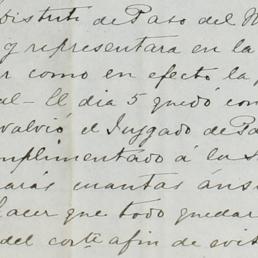 Distrito de Paso del N
y representara en la
r como en efecto la
al - El dia 5 quedó con
valvió el Juzgado de Pa
mplimentado á la S
arás cuantas áns
hacer que todo quedar
del corte afin de evit